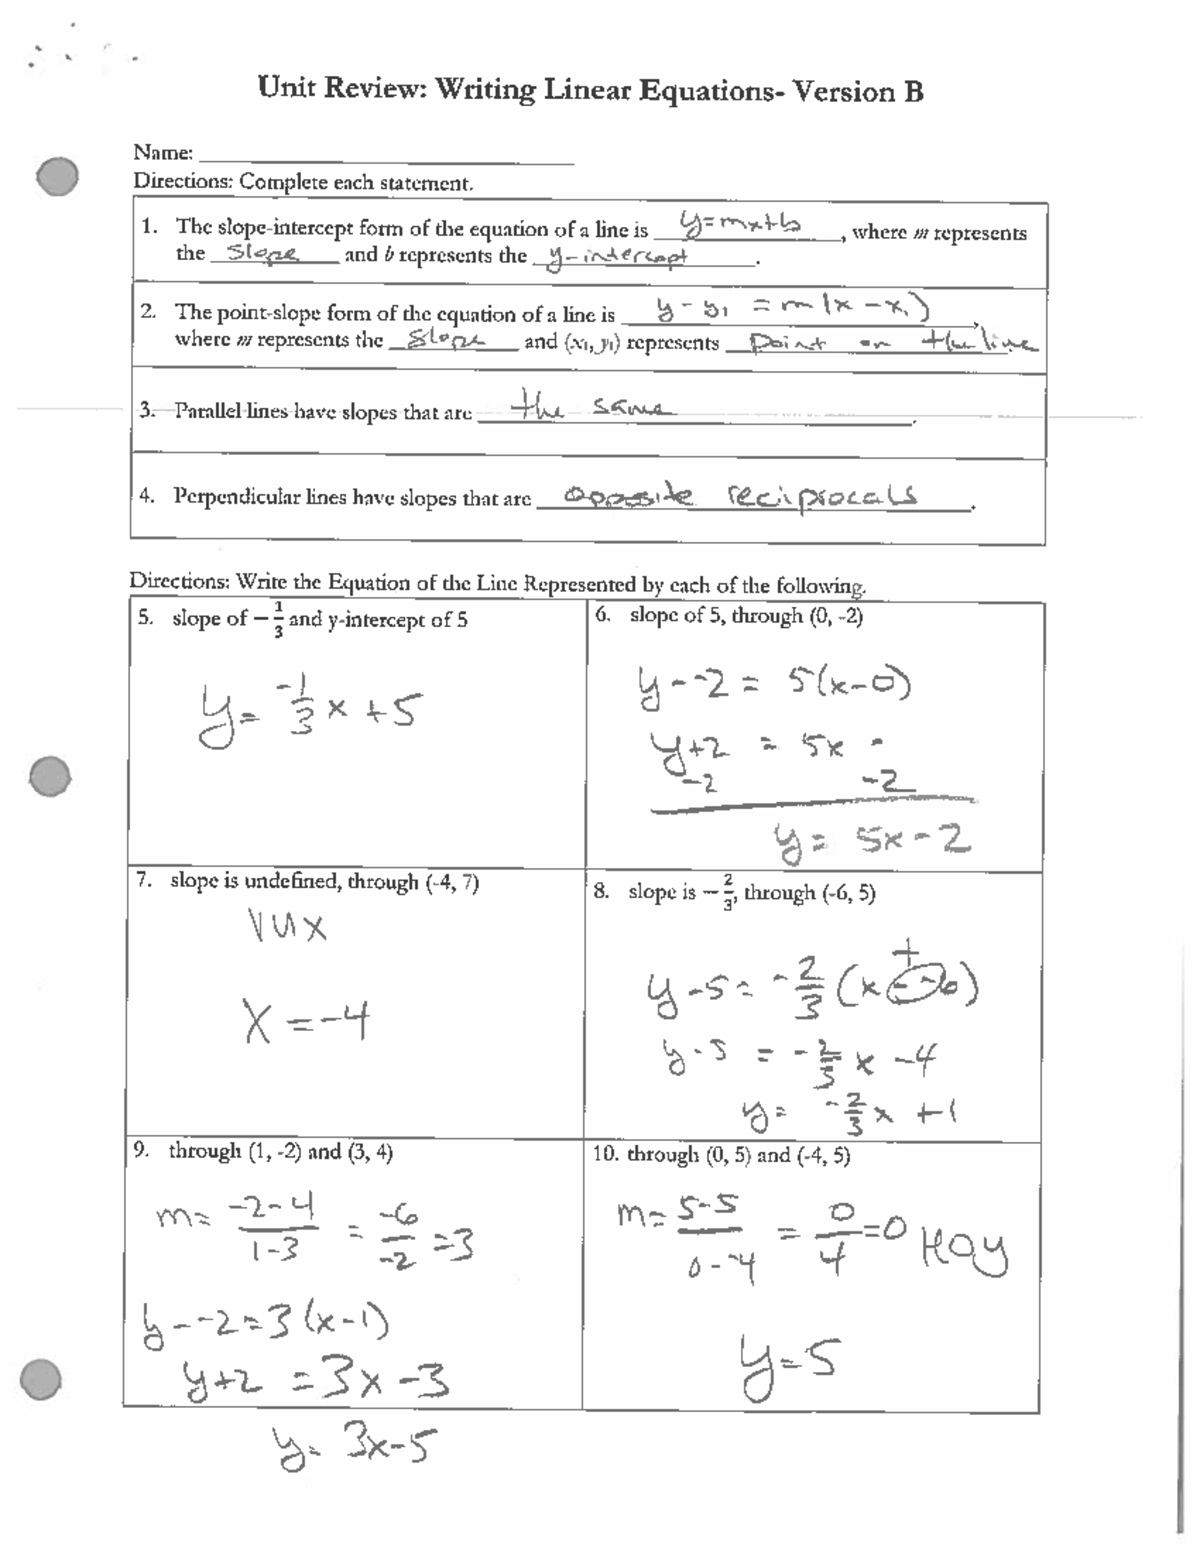 Unit Review: Writing Linear Equations- Version B
Name: ____________________
Directions: Complete each statement.
1. The slope-intercept form of the equation of a line is y=mx+b, where m represents
the slope and b represents the y-intercept.
2. The point-slope form of the equation of a line is y-y₁ = m(x-x₁),
where m represents the slope and (x₁, y₁) represents point on the line.
3. Parallel lines have slopes that are the same.
4. Perpendicular lines have slopes that are opposite reciprocals.
Directions: Write the Equation of the Line Represented by each of the following.
5. slope of -1/3 and y-intercept of 5
y= -1/3 x +5
6. slope of 5, through (0, -2)
y--2 = 5(x-0)
y+2 = 5x -
-2 -2
y= 5x-2
7. slope is undefined, through (-4, 7)
VUX
X=-4
8. slope is -2/3, through (-6, 5)
+
y-5= -2/3 (x--6)
y-5 = -2/3 x -4
y= -2/3 x +1
9. through (1, -2) and (3, 4)
m= -2-4/1-3 = -6/-2 =3
y--2=3(x-1)
y+2 =3x-3
y= 3x-5
10. through (0, 5) and (-4, 5)
m= 5-5/0--4 = 0/4 =0 HOY
y=5